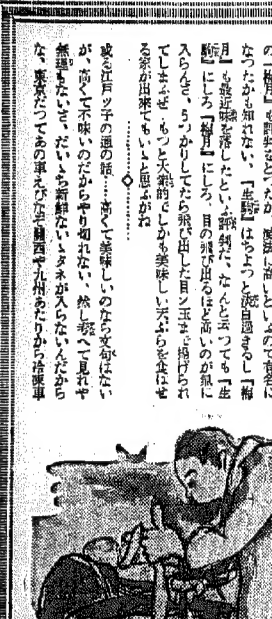 なつたかも知れない、『生駒』はちよつと淡白過ぎるし『梅
月』も最近味を落したといふ評判だ、なんと云つても『生
駒』にしろ『梅月』にしろ、目の飛び出るほど高いのが気に
入らんさ、うつかりしてたら飛び出した目ン玉まで揚げられ
てしまふぜ、もつと大衆的でしかも美味しい天ぷらを食はせ
る家が出来てもいゝと思ふがね
或る江戸ツ子の通の話……高くて美味しいのなら文句はない
が、高くて不味いのだからやり切れない、然し考へて見れや
無理もないさ、だいいち新鮮ないゝタネが入らないんだから
な、東京だつてあの車えびなぞ関西や九州あたりから冷凍車